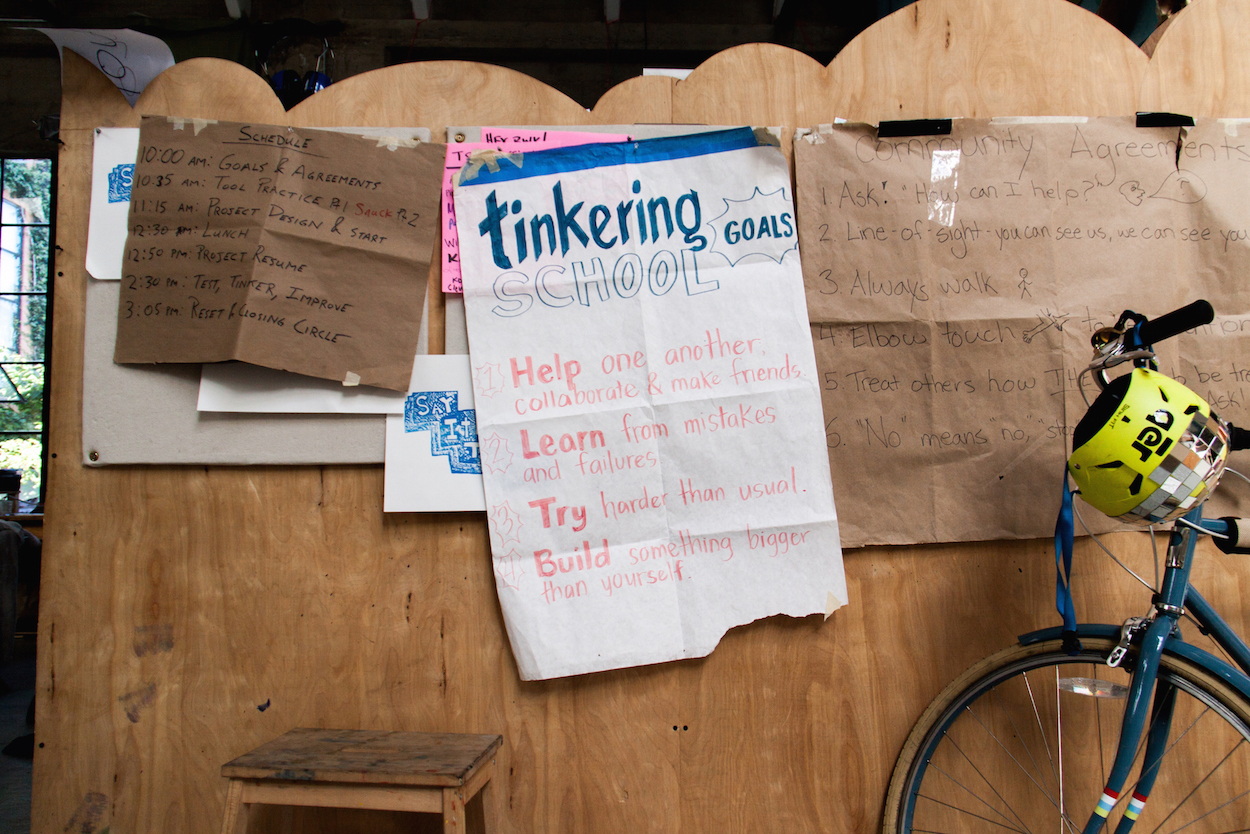 SCHEDULE
10:00 AM: GOALS & AGREEMENTS
10:35 AM: TOOL PRACTICE Pt 1 Snack Pt 2
11:15 AM: PROJECT DESIGN & START
12:30 PM: LUNCH
12:50 PM: PROJECT RESUME
2:30 PM: TEST, TINKER, IMPROVE
3:05 PM: RESET & CLOSING CIRCLE
HEY
SAY
IT
tinkering
SCHOOL
GOALS
1 Help one another,
collaborate & make friends.
2 Learn from mistakes
and failures
3 Try harder than usual.
Build something bigger
than yourself.
Community Agreements
1. Ask! "How can I help?"
2 Line-of-sight-you can see us, we can see you
3. Always walk
4. Elbow touch
5 Treat others how
be tre
Ask!
6. "No" means "no,"